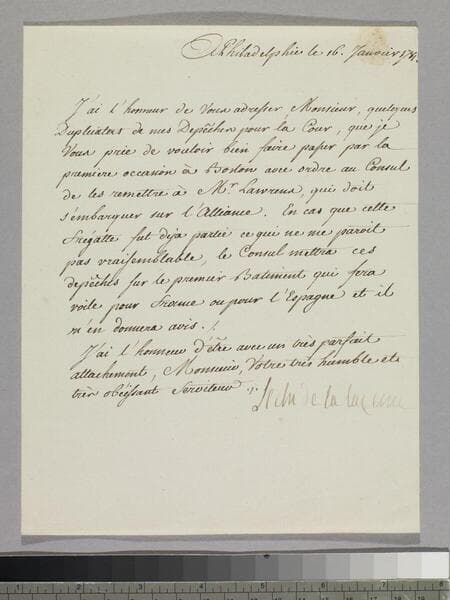 à Philadelphie le 16. Janvier
J'ai l'honneur de Vous adresser Monsieur, quelques
Duplicatas de mes Depêches pour la Cour, que je
Vous prie de vouloir bien faire passer par la
premiere occasion à Boston avec ordre au Consul
de les remettre à Mr. Lawrens, qui doit
s'embarquer sur l'Alliance. En cas que cette
Frégatte fut deja partie ce qui ne me paroit
pas vraisemblable, le Consul mettra ces
depêches sur le premier Batiment qui fera
voile pour France ou pour l'Espagne et il
m'en donnera avis ./.
J'ai l'honneur d'être avec un très parfait
attachement, Monsieur, Votre très humble et
très obéissant Serviteur ./.
le chr de la luzerne
1 2 3 4 5 6 7 8